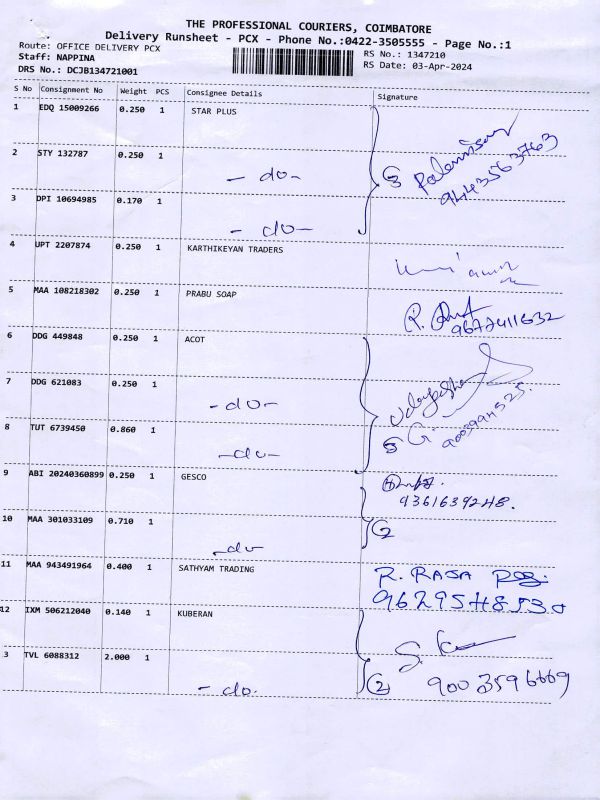 THE PROFESSIONAL COURIERS, COIMBATORE
Delivery Runsheet - PCX - Phone No.:0422-3505555 - Page No.:1
Route: OFFICE DELIVERY PCX
RS No.: 1347210
Staff: NAPPINA
RS Date: 03-Apr-2024
DRS No.: DCJB134721001
S No Consignment No Weight PCS Consignee Details Signature
1 EDQ 15009266 0.250 1 STAR PLUS
2 STY 132787 0.250 1 - do -
3 9443563763
3 DPI 10694985 0.170 1 - do -
4 UPT 2207874 0.250 1 KARTHIKEYAN TRADERS
5 MAA 108218302 0.250 1 PRABU SOAP
R.
9677411632
6 DDG 449848 0.250 1 ACOT
7 DDG 621083 0.250 1 - do -
8 TUT 6739450 0.860 1 - do -
9 ABI 20240360899 0.250 1 GESCO
9361639248.
10 MAA 301033109 0.710 1 - do
2
11 MAA 943491964 0.400 1 SATHYAM TRADING
R. RAJA
9629548530
12 IXM 506212040 0.140 1 KUBERAN
3 TVL 6088312 2.000 1 - do.
2 9003596669